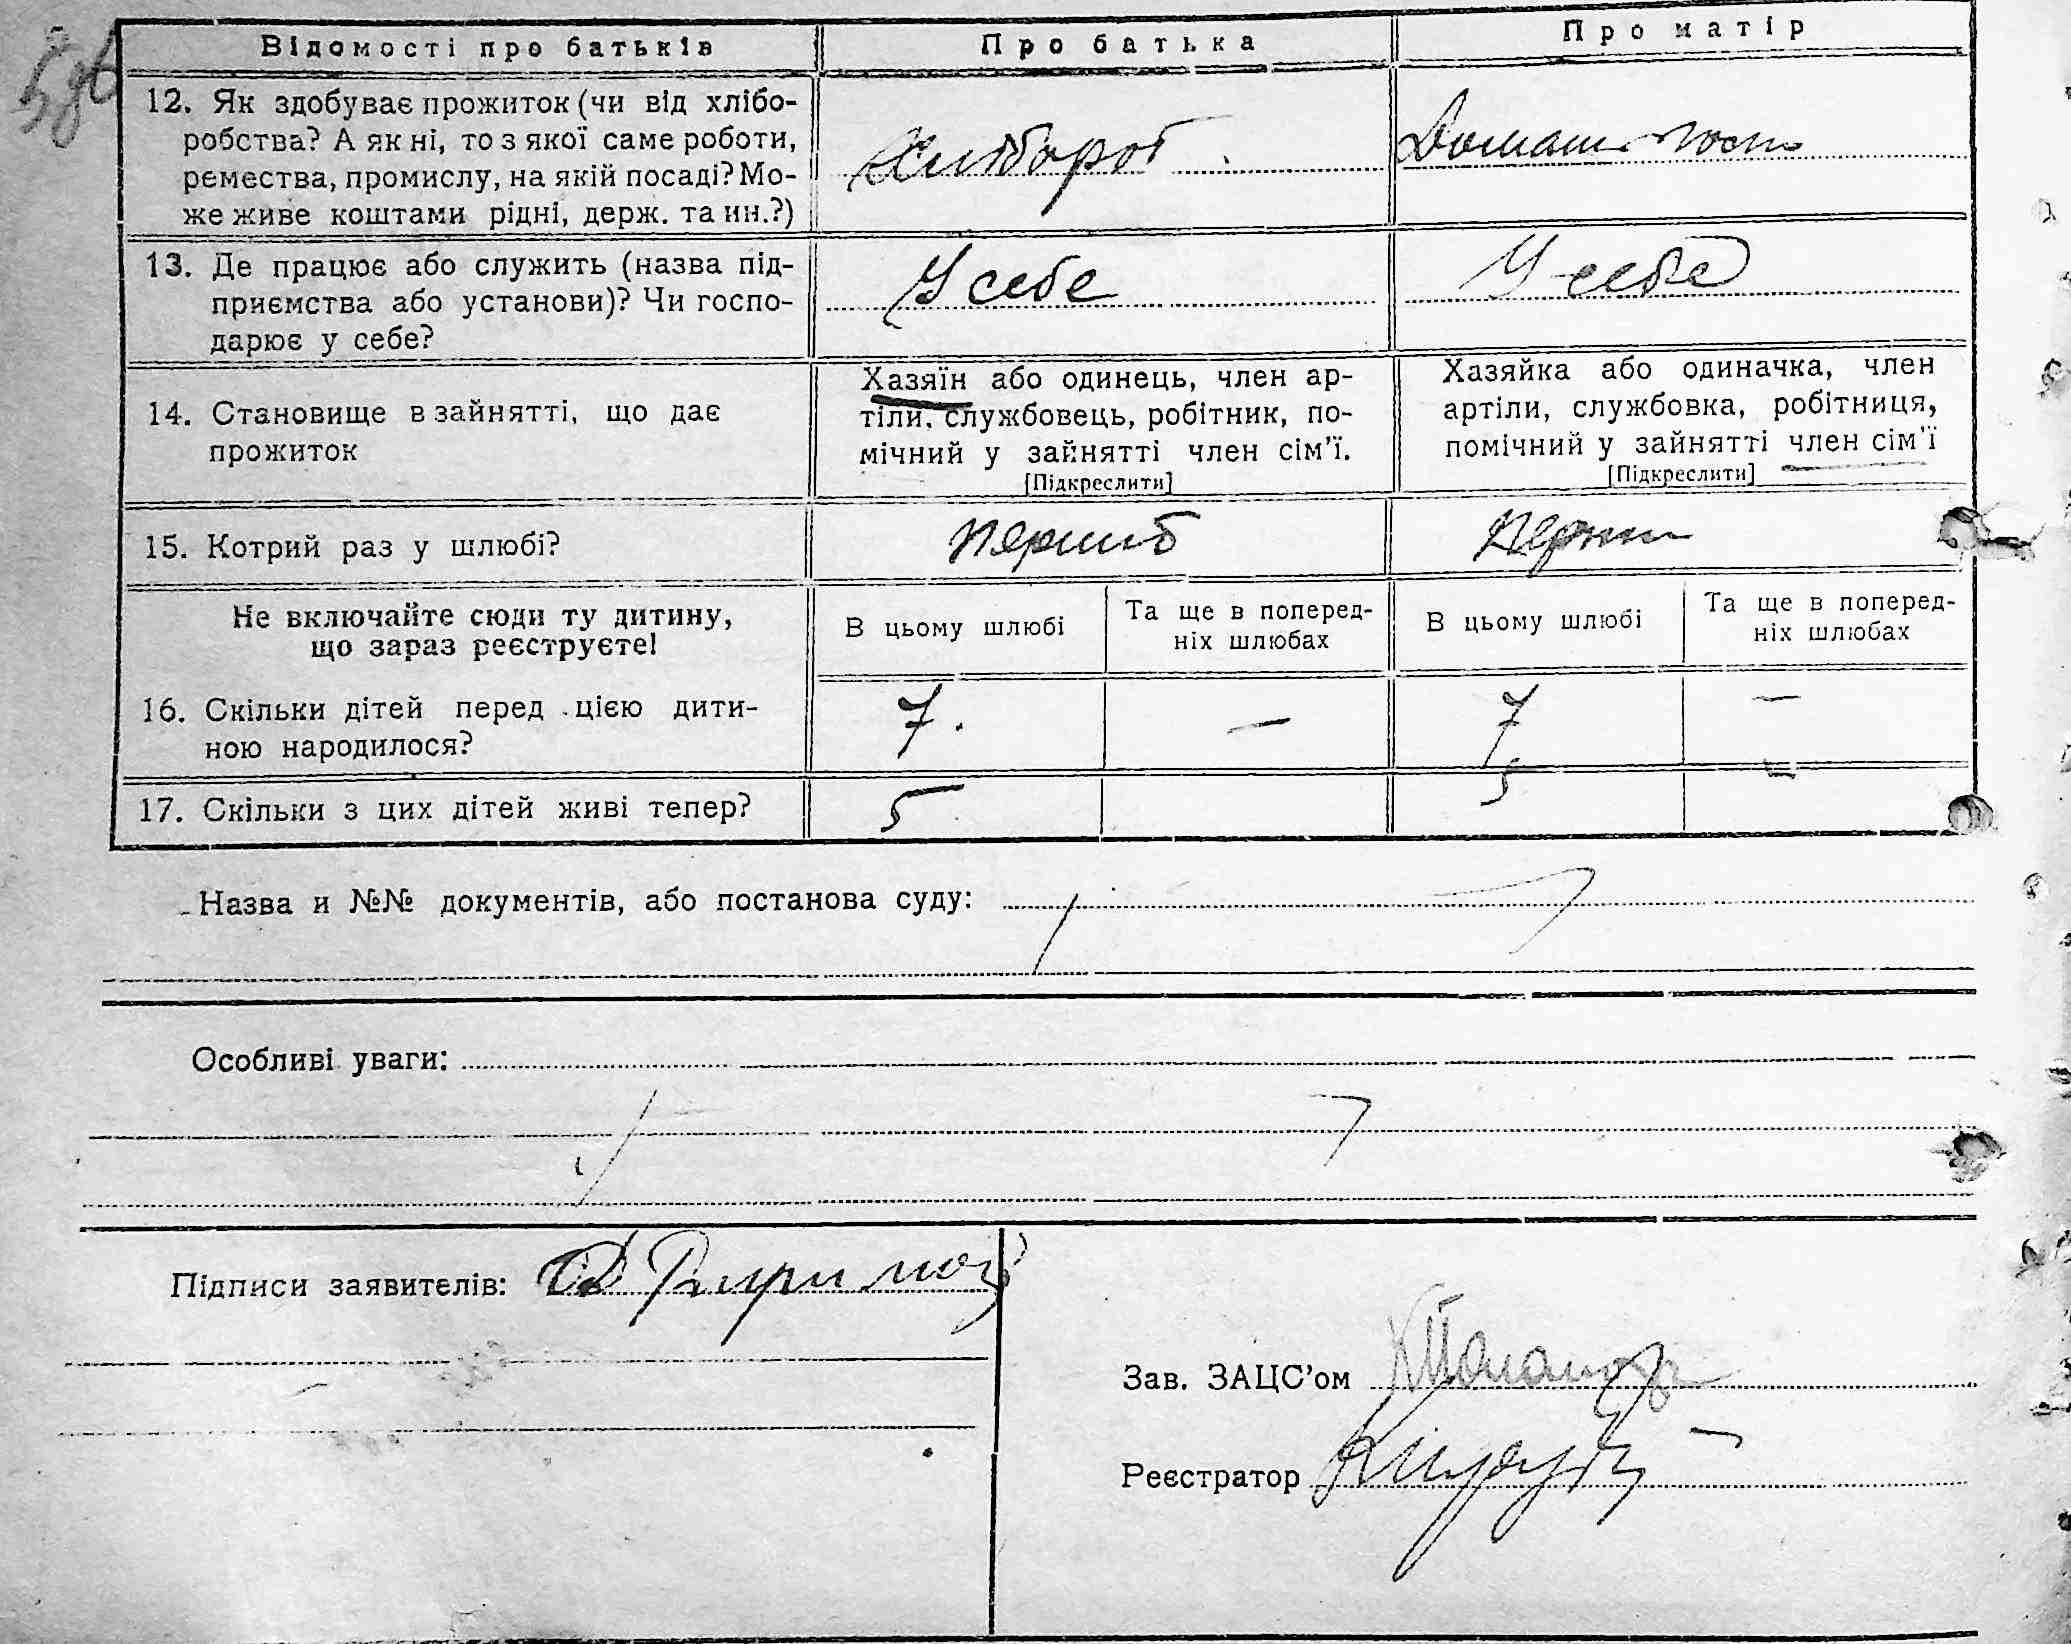 Відомості про батьків
Про батька
Про матір
12. Як здобуває прожиток (чи від хлібо-
робства? А як ні, то з якої саме роботи,
ремества, промислу, на якій посаді? Мо-
же живе коштами рідні, держ. та ин.?)
13. Де працює або служить (назва під-
приємства або установи)? Чи госпо-
дарює у себе?
У себе
У себе
14. Становище в зайнятті, що дає
прожиток
Хазяїн або одинець, член ар-
тіли, службовець, робітник, по-
мічний у зайнятті член сім'ї.
[Підкреслити]
Хазяйка або одиначка, член
артіли, службовка, робітниця,
помічний у зайнятті член сім'ї
[Підкреслити]
15. Котрий раз у шлюбі?
Не включайте сюди ту дитину,
що зараз реєструєте!
В цьому шлюбі
Та ще в поперед-
ніх шлюбах
В цьому шлюбі
Та ще в поперед-
ніх шлюбах
16. Скільки дітей перед цією дити-
ною народилося?
7.
—
7
—
17. Скільки з цих дітей живі тепер?
5
5
Назва и №№ документів, або постанова суду:
Особливі уваги:
Підписи заявителів:
Зав. ЗАЦС'ом
Реєстратор